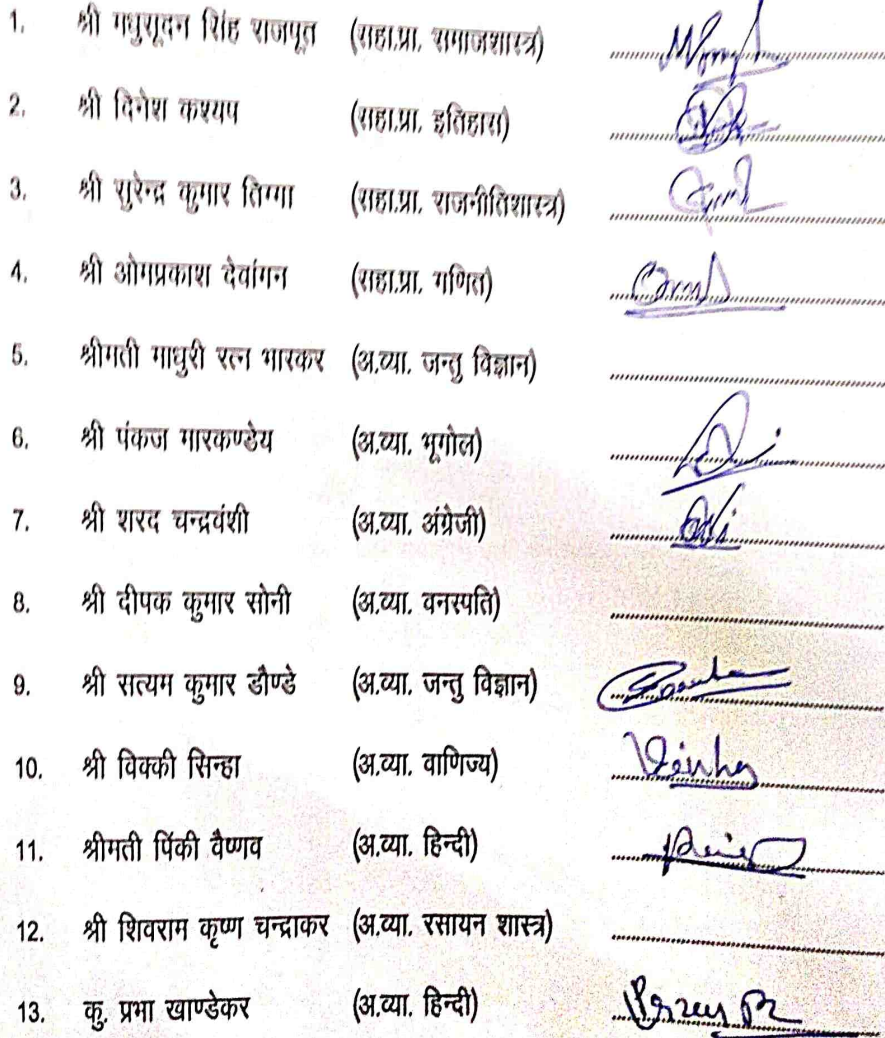 1. श्री मधुसूदन सिंह राजपूत (सहा.प्रा. समाजशास्त्र)
2. श्री दिनेश कश्यप (सहा.प्रा. इतिहास)
3. श्री सुरेन्द्र कुमार तिग्गा (सहा.प्रा. राजनीतिशास्त्र)
4. श्री ओमप्रकाश देवांगन (सहा.प्रा. गणित)
5. श्रीमती माधुरी रत्न भास्कर (अ.व्या. जन्तु विज्ञान)
6. श्री पंकज मारकण्डेय (अ.व्या. भूगोल)
7. श्री शरद चन्द्रवंशी (अ.व्या. अंग्रेजी)
8. श्री दीपक कुमार सोनी (अ.व्या. वनस्पति)
9. श्री सत्यम कुमार डौण्डे (अ.व्या. जन्तु विज्ञान)
10. श्री विक्की सिन्हा (अ.व्या. वाणिज्य)
11. श्रीमती पिंकी वैष्णव (अ.व्या. हिन्दी)
12. श्री शिवराम कृष्ण चन्द्राकर (अ.व्या. रसायन शास्त्र)
13. कु. प्रभा खाण्डेकर (अ.व्या. हिन्दी)